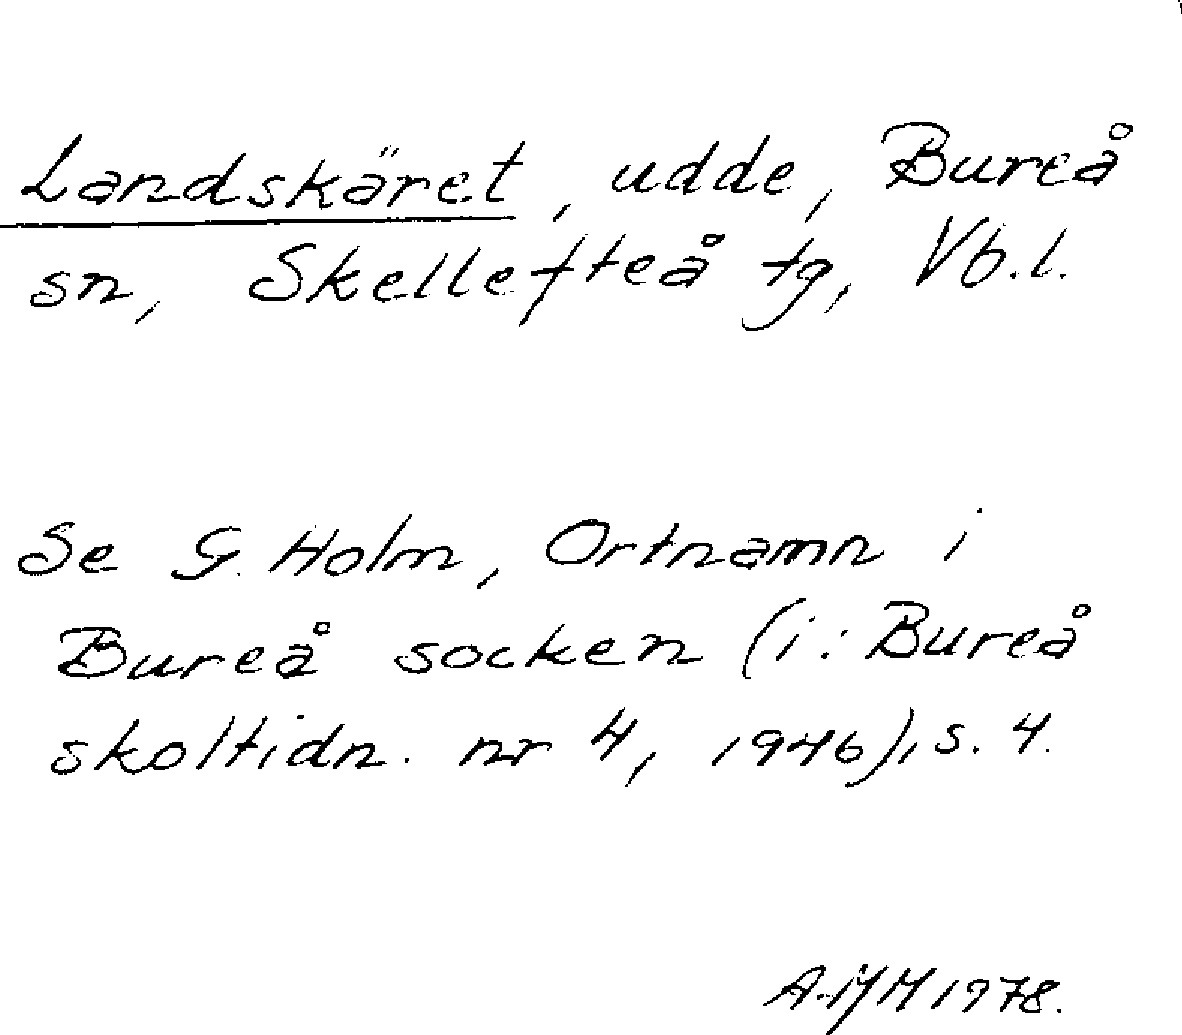 Landskäret, udde, Bureå
sn, Skellefteå tg, Vb.l.
Se G. Holm, Ortnamn i
Bureå socken (i: Bureå
skoltidn. nr 4, 1946), s. 4.
1978.